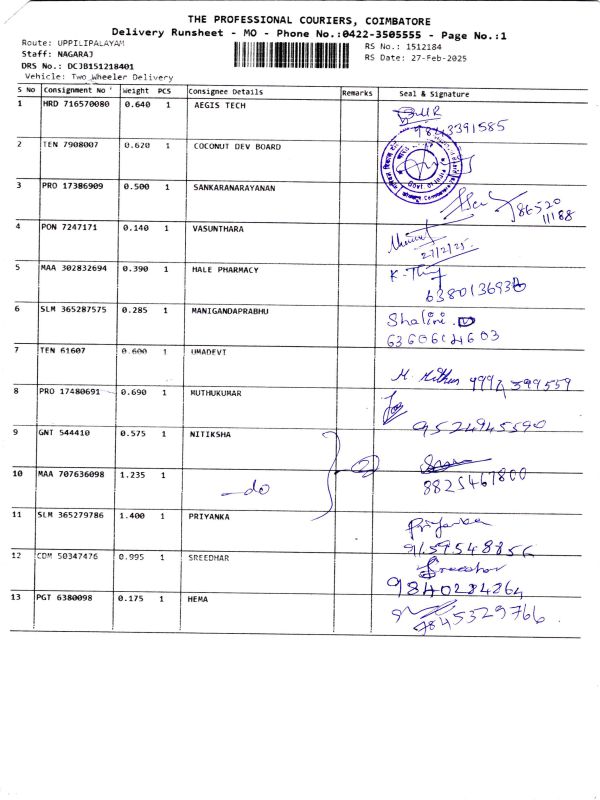 THE PROFESSIONAL COURIERS, COIMBATORE
Delivery Runsheet - MO - Phone No.:0422-3505555 - Page No.:1
Route: UPPILIPALAYAM
RS No.: 1512184
Staff: NAGARAJ
RS Date: 27-Feb-2025
DRS No.: DCJB151218401
Vehicle: Two Wheeler Delivery
S No Consignment No Weight PCS Consignee Details Remarks Seal & Signature
1 HRD 716570080 0.640 1 AEGIS TECH
9843391585
2 TEN 7908007 0.620 1 COCONUT DEV BOARD
Govt. of India
3 PRO 17386909 0.500 1 SANKARANARAYANAN
86520
11188
4 PON 7247171 0.140 1 VASUNTHARA
27/2/25
5 MAA 302832694 0.390 1 HALE PHARMACY
6 SLM 365287575 0.285 1 MANIGANDAPRABHU
Shalini
6360614603
7 TEN 61607 0.600 1 UMADEVI
8 PRO 17480691 0.690 1 MUTHUKUMAR
9524945590
9 GNT 544410 0.575 1 NITIKSHA
10 MAA 707636098 1.235 1 do
8825467800
11 SLM 365279786 1.400 1 PRIYANKA
Priyanka
9159548856
12 CDM 50347476 0.995 1 SREEDHAR
Sreedhar
9840284264
13 PGT 6380098 0.175 1 HEMA
9845329766